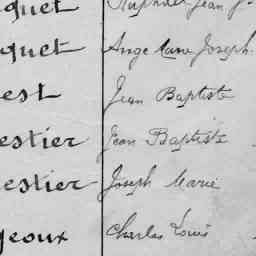 quet Raphael Jean J
quet Ange Marie Joseph
est Jean Baptiste
estier Jean Baptiste
estier Joseph Marie
geoux Charles Louis